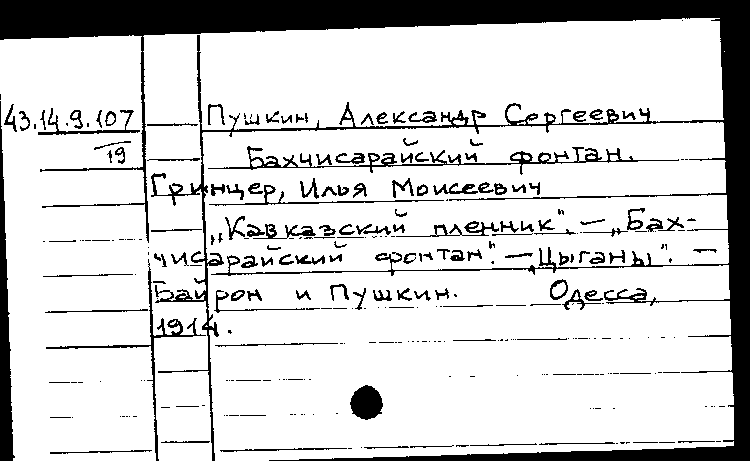 43.14.9.107 Пушкин, Александр Сергеевич
19 Бахчисарайский фонтан.
Гринцер, Илья Моисеевич
„Кавказский пленник". — „Бах-
чисарайский фонтан". — „Цыганы". —
Байрон и Пушкин. Одесса,
1914.